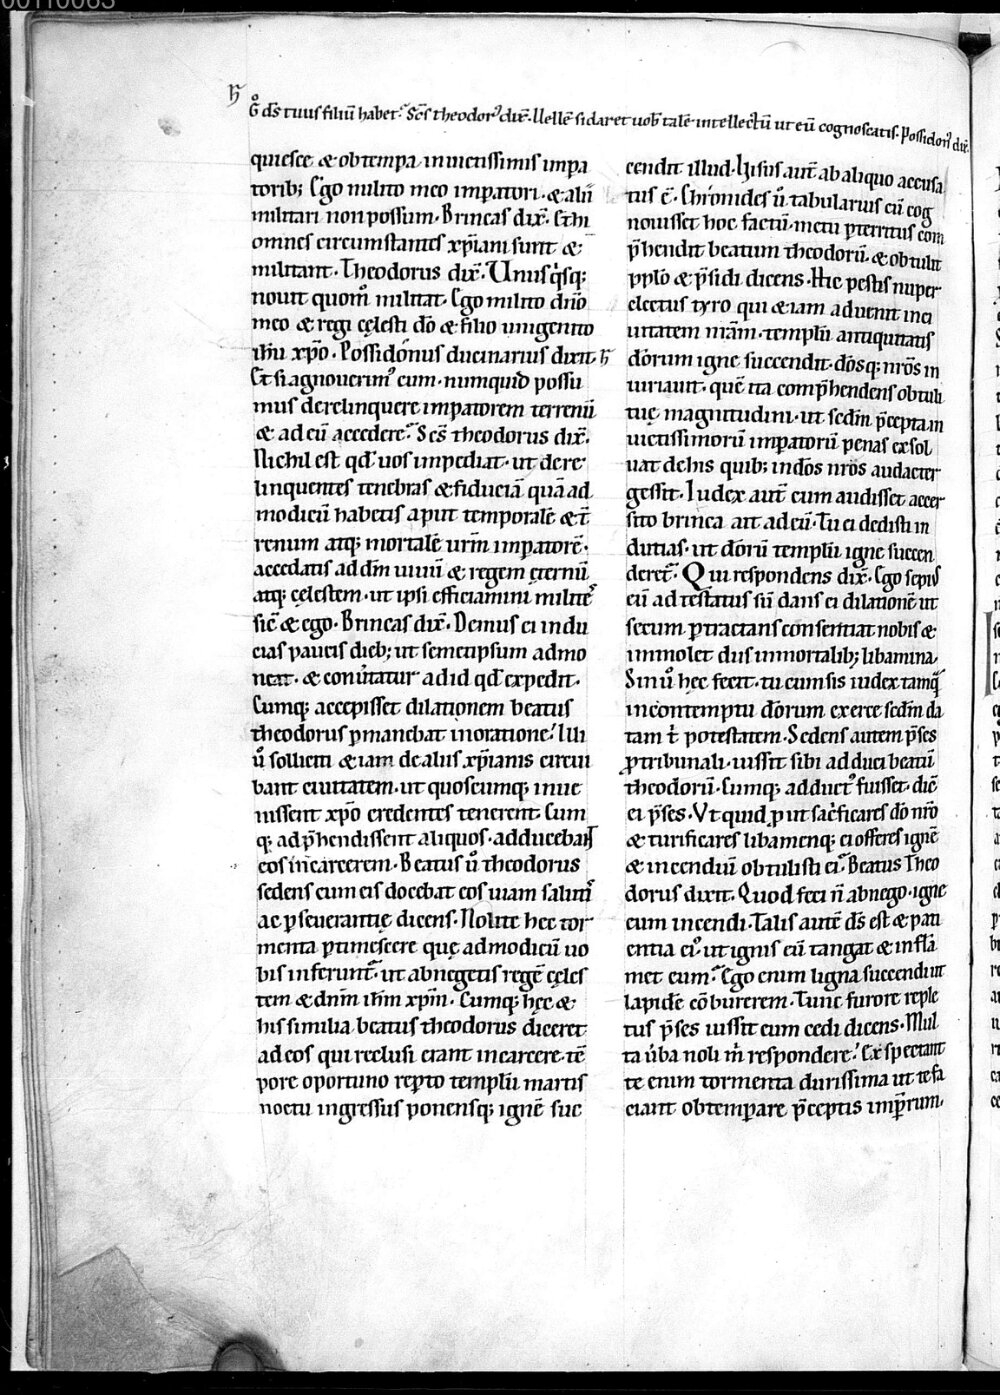 00110063
ħ G̊ ds̄ tuus filiū habet. Scs̄ theodorꝰ dix̄. Uellē si daret uob̄ talē intellectū ut eū cognoscatis. Possidonꝰ dix̄.
quiesce & obtempa inuictissimis impa
torib; Ego milito meo imꝑatori. & alii
militari non possum. Brincas dix̄. Et hi
omnes circumstantes xp̄iani sunt &
militant. Theodorus dix̄. Unus q̇sq;
nouit quom̊ militat. Ego milito dn̄o
meo & regi cęlesti dō & filio unigenito
ih̄u xp̄o. Possidonius ducinarius dixit. ħ
Et si agnouerimꝰ eum. numquid possu
mus derelinquere imꝑatorem terrenū
& ad eū accedere? Scs̄ theodorus dix̄.
Nichil est qđ uos impediat. ut dere
linquentes tenebras & fiduciā quā ad
modicū habetis aput temporalē & t̄
renum atq; mortalē urm̄ imꝑatorē.
accedatis ad dm̄ uiuū & regem ęternū
atq; cęlestem. ut ipsi efficiamini militeꝰ
sic̄ & ego. Brincas dix̄. Demus ei indu
cias paucis dieb; ut semetipsum admo
neat. & conūtatur ad id qđ expedit.
Cumq; accepisset dilationem beatus
theodorus ꝑmanebat in oratione. Illi
ů solliciti & iam de aliis xp̄ianis circui
bant ciuitatem. ut quoscumq; inue
nissent xp̄o credentes tenerent. Cum
q; ad p̄hendissent aliquos. adducebant
eos in carcerem. Beatus ů theodorus
sedens cum eis docebat eos uiam salutiꝰ
ac ꝑseuerantię dicens. Nolite hec tor
menta ꝑtimescere quę ad modicū uo
bis inferunt̄. ut abnegetis regē cęles
tem & dnm̄ ih̄m xp̄m. Cumq; hęc &
his similia beatus theodorus diceret
ad eos qui reclusi erant in carcere. tē
pore oportuno reꝑto templū martis
noctu ingressus ponensq; ignē suc
cendit illud. Uisus aut̄ ab aliquo accusa
tus ē. Chronides ů tabularius cū cog
nouisset hoc factū. metu ꝑterritus com
p̄hendit beatum theodorū. & obtulit
pplo & p̄sidi dicens. Hic pestis nuper
electus tyro qui & iam aduenit in ci
uitatem nr̄am. templū antiquitatis
dōrum igne succendit. dōsq; nr̄os in
iuriauit. quē ita comp̄hendens obtuli
tuę magnitudini. ut sedm̄ p̄cepta in
uictissimorū imꝑatorū penas exsol
uat de his quib; in dōs nr̄os audacter
gessit. Iudex aut̄ eum audisset accer
sito brinca ait ad eū. Tu ei dedisti in
dutias. ut dōrū templū igne succen
deret? Qui respondens dix̄. Ego sepius
eū ad testatus sū dans ei dilationē ut
secum ꝑtractans consentiat nobis &
immolet diis inmortalib; libamina.
Si nů hęc fecit. tu cum sis iudex tamq̄
in contemptu dōrum exerce sedm̄ da
tam t̄ potestatem. Sedens autem p̄ses
ꝓ tribunali. iussit sibi adduci beatū
theodorū. Cumq; adductꝰ fuisset. dic̄
ei p̄ses. Ut quid ꝓ ut sac̊ficares dō nr̄o
& turificares libamenq; ei offeres ignē
& incendiū obtulisti ei? Beatus Theo
dorus dixit. Quod feci n̄ abnego. igne
eum incendi. Talis autē ds̄ est & poti
entia eiꝰ. ut ignis eū tangat & inflā
met eum? Ego enim ligna succendi ut
lapidē cōburerem. Tunc furore reple
tus p̄ses iussit eum cedi dicens. Mul
ta ůba noli m̊ respondere. Exspectant
te enim tormenta durissima ut te fa
ciant obtemꝑare p̄ceptis imꝑrum.